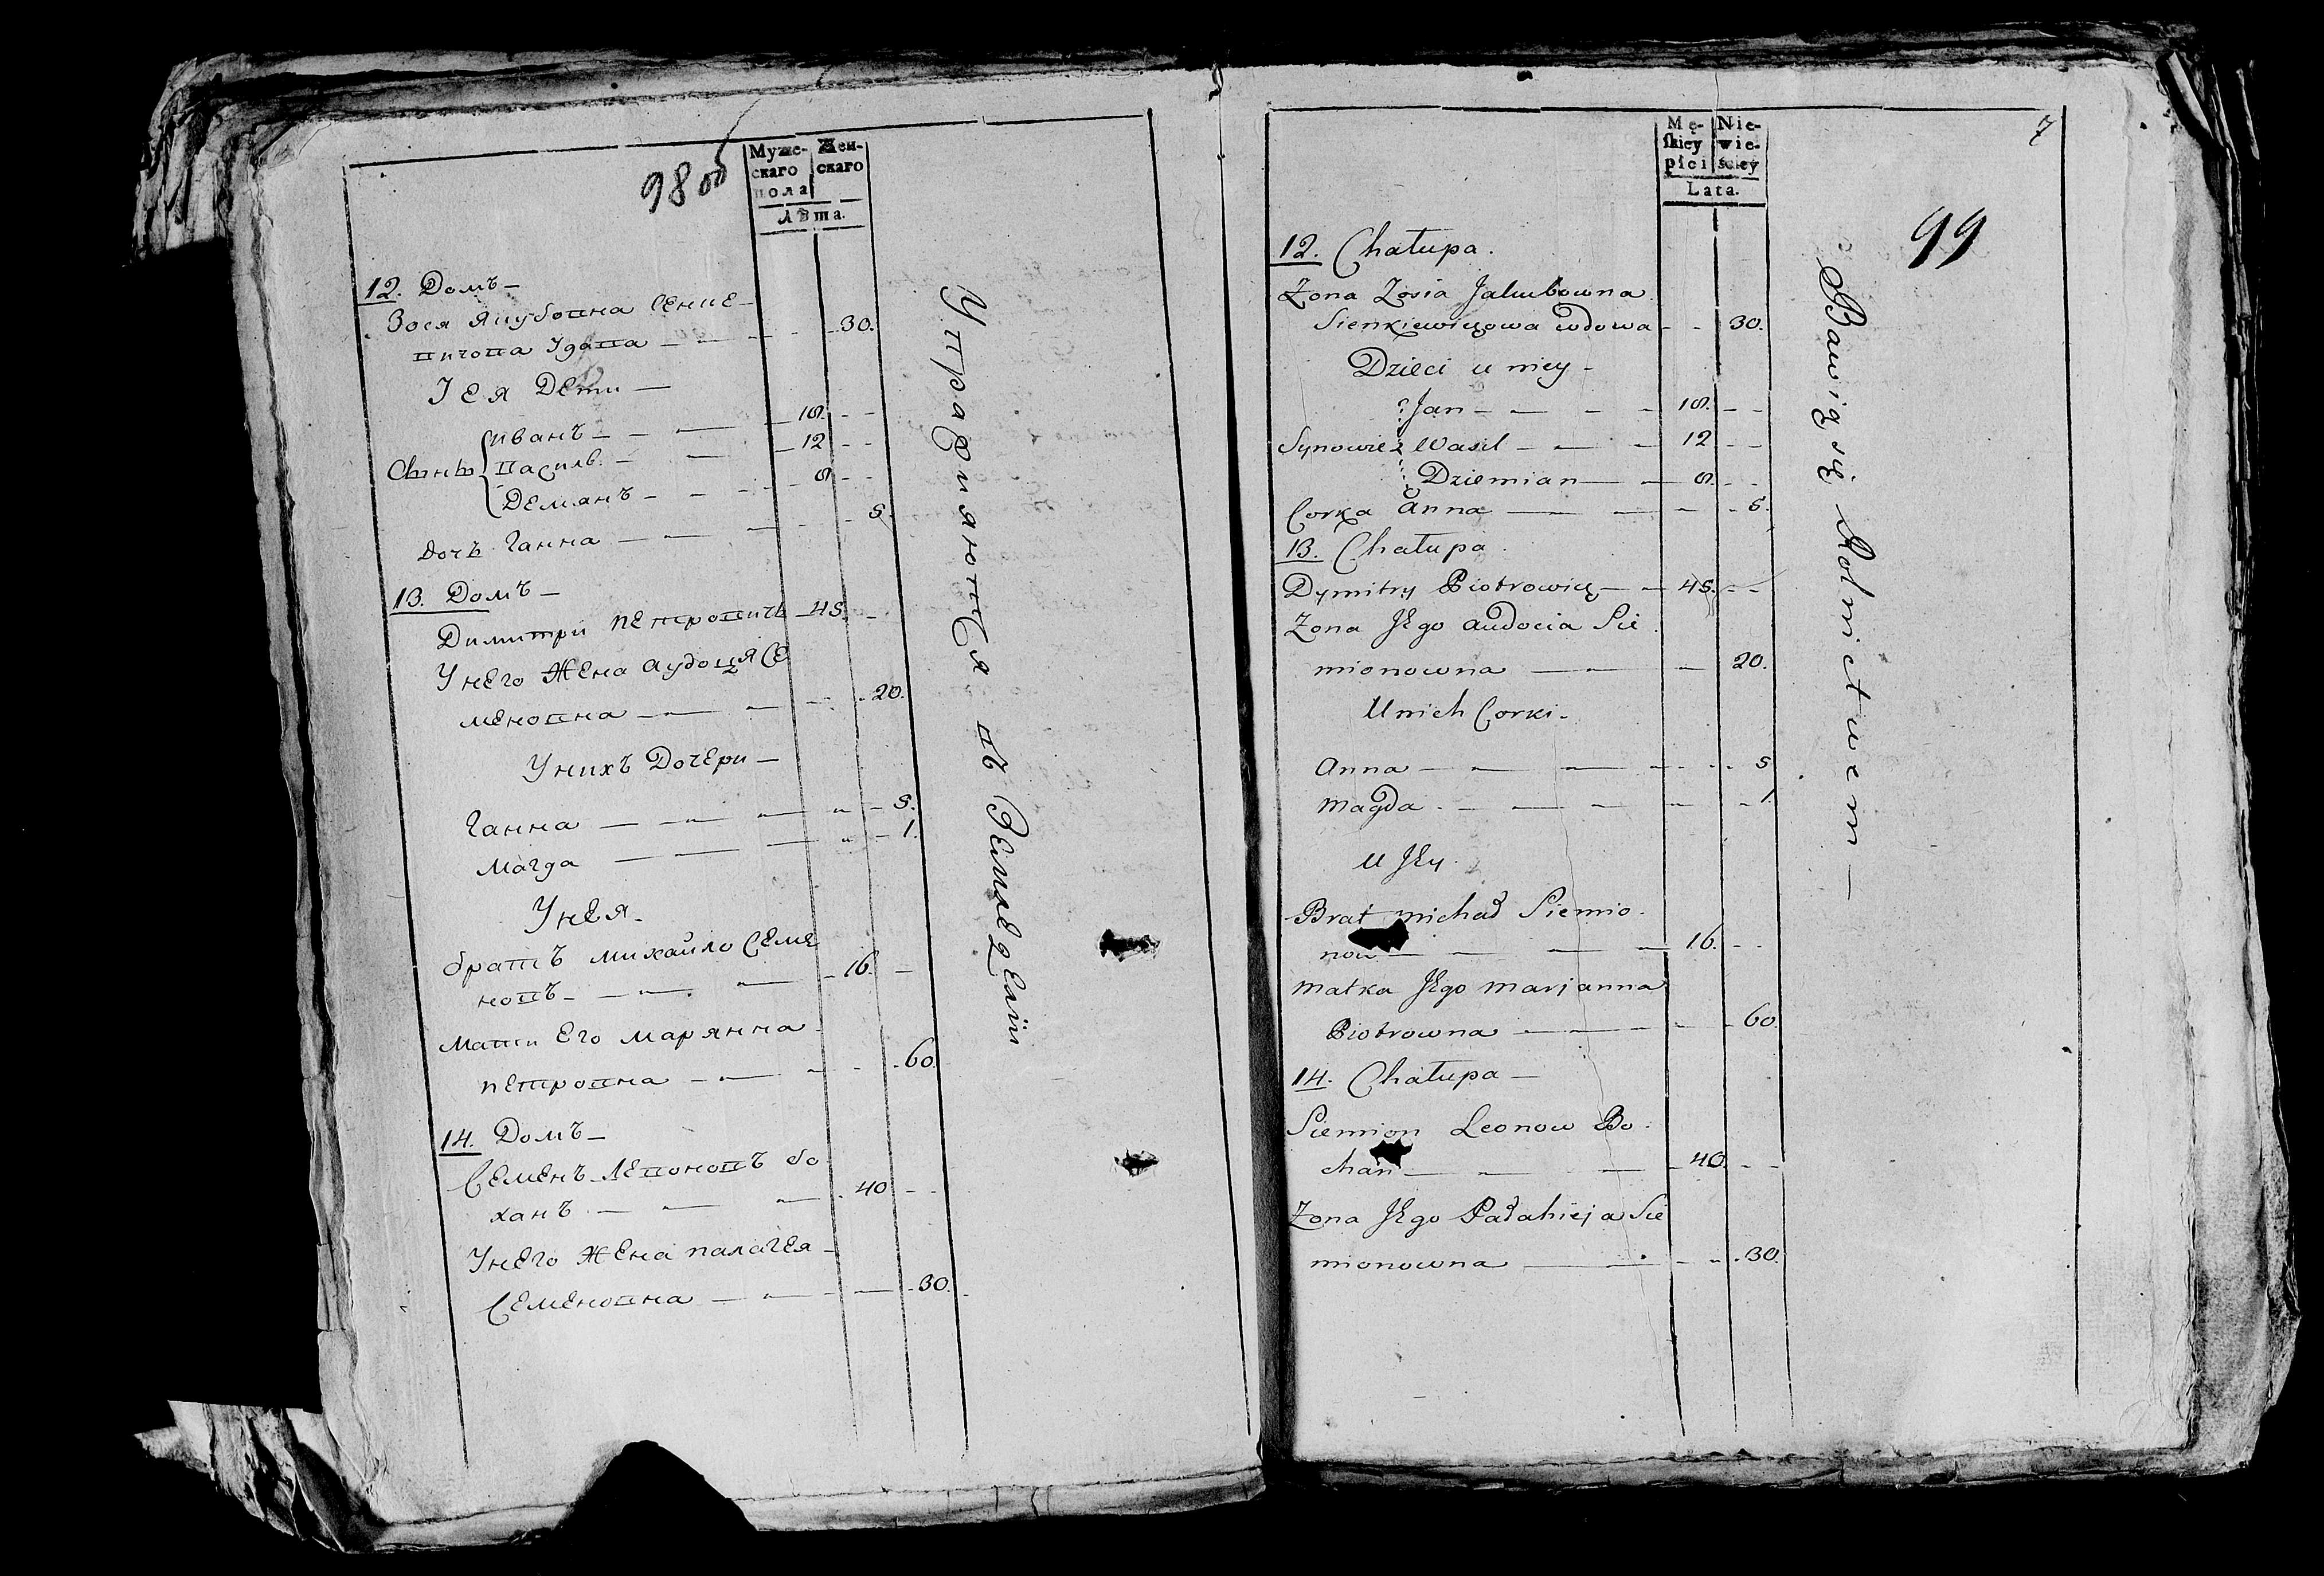 98 об
Муже-
скаго
пола
Жен-
скаго
Лѣта.
12. Домъ —
Зося Якубовна Сенке-
вичова Удова — 30.
Iея Дети —
Иванъ — 18.
Сынъ Василь — 12
Деманъ — 8
Дочъ Ганна — 5.
13. Домъ —
Димитри Петровичъ — 45.
У него Жена Аудоця Се
меновна — 20.
У нихъ Дочери —
Ганна — 5.
Магда — 1.
У нея.
братъ Михайло Семе
новъ — 16.
Мати Его Марянна
Петровна — 60.
14. Домъ —
Семенъ Левоновъ бо
ханъ — 40
У него Жена Палагея
Семеновна — 30.
Упражняются въ Земледелии
7
99
Mę-
skiey
płci
Nie-
wie-
sciey
Lata.
12. Chałupa.
Zona Zosia Jakubowna
Sienkiewiczowa wdowa — 30.
Dzieci u niey —
Jan — 18.
Synowie Wasil — 12
Dziemian — 8.
Corka Anna — 5.
13. Chałupa.
Dymitry Piotrowicz — 45.
Zona Jego Audocia Sie
mionowna — 20.
U nich Corki.
Anna — 5
Magda — 1.
U Jey.
Brat Michał Siemio
now — 16.
Matka Jego Marjanna
Piotrowna — 60.
14. Chałupa —
Siemion Leonow Bo
chan — 40.
Zona Jego Pałahieja Sie
mionowna — 30.
Bawią się Rolnictwem —